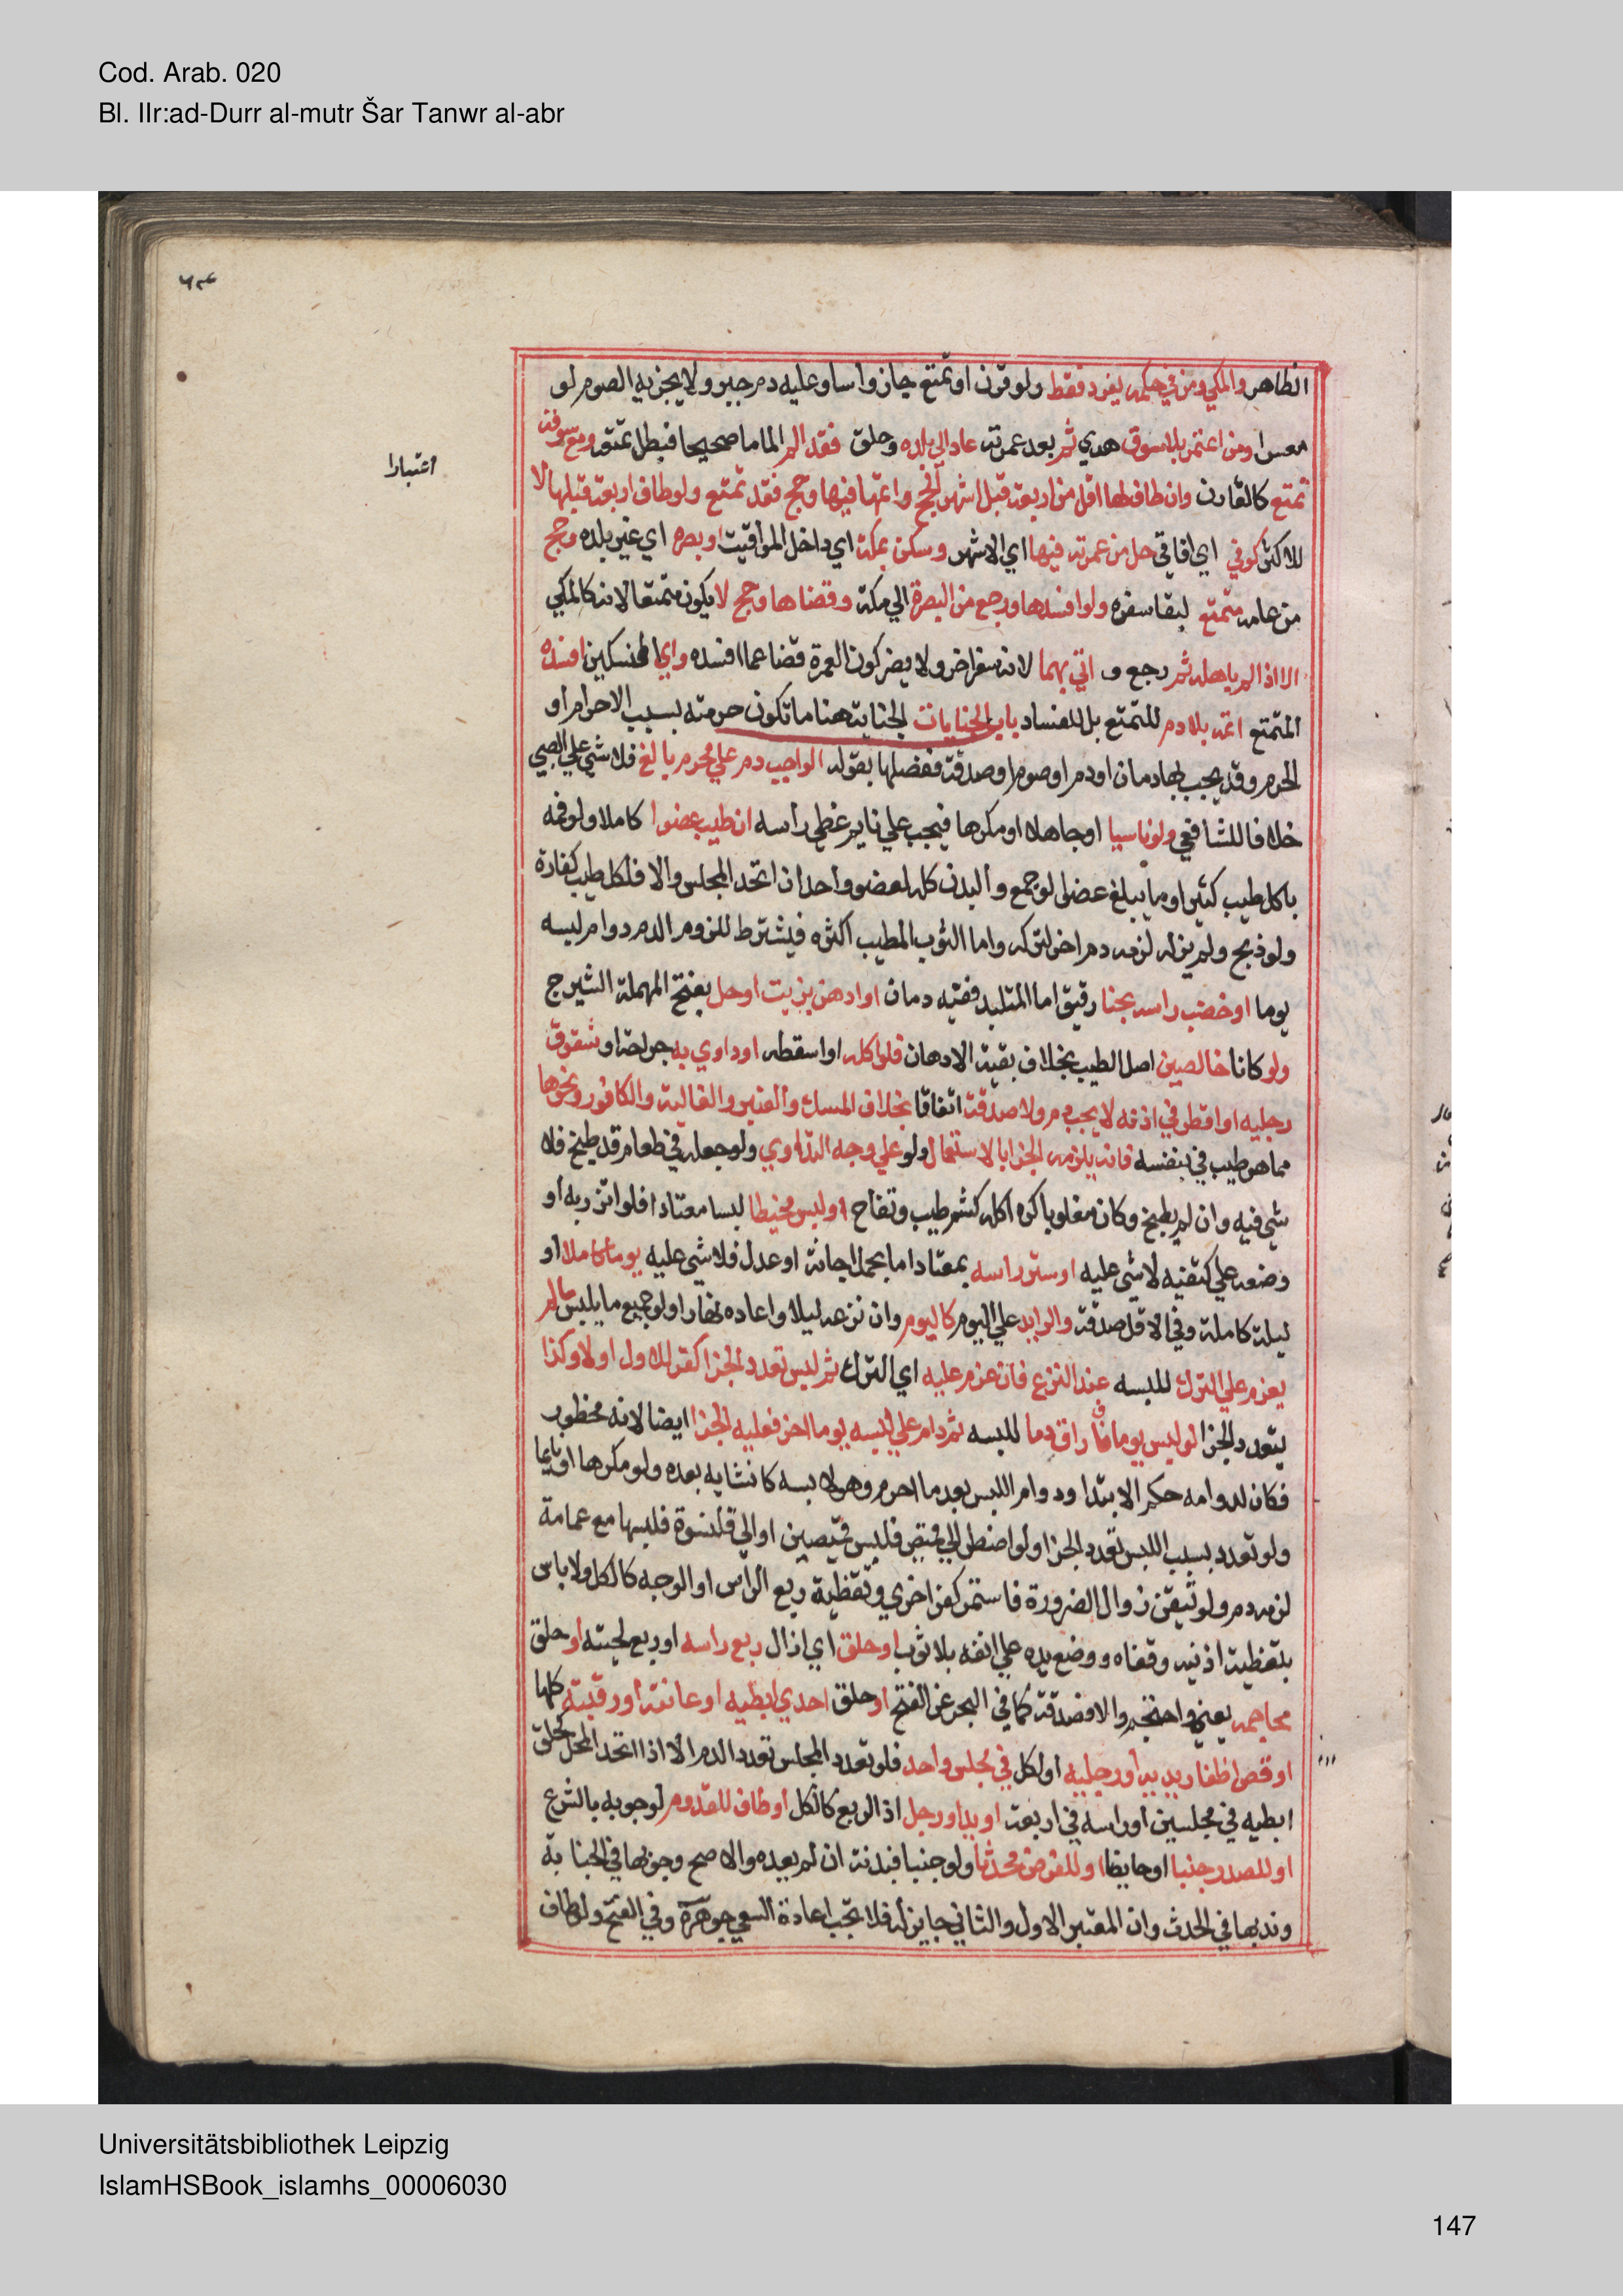 Cod. Arab. 020
Bl. IIr:ad-Durr al-mutr Šar Tanwr al-abr
الظاهر والمكي ومن في حكمه يفرد فقط ولو قرن او تمتع جاز واسا وعليه دم جبر ولا يجزيه الصوم لو
معسرا ومن اعتمر بلا سوق هدي ثم بعد عمرته عاد الي بلده وحلق فقد الم الماما صحيحا فبطل تمتعه ومع سوقه
اعتبارا
تمتع كالقارن وان طاف لها اقل من اربعة قبل اشهر الحج واتمها فيها وحج فقد تمتع ولو طاف اربعة قبلها لا
للاكثر كوفي اي افاقي حل من عمرته فيها اي الاشهر وسكن بمكة اي داخل المواقيت او بصره اي غير بلده وحج
من عامه متمتع لبقا سفره ولو افسدها ورجع من البصرة الي مكة وقضاها وحج لا يكون متمتعا لانه كالمكي
الا اذا الم باهله ثم رجع و اتي بهما لانه سفر اخر ولا يضر كون العمرة قضا عما افسده واي النسكين افسده
المتمتع اتمه بلا دم للتمتع بل للفساد باب الجنايات الجناية هنا ما تكون حرمته بسبب الاحرام او
الحرم وقد يجب بها دمان او دم او صوم او صدقة ففصلها بقوله الواجب دم علي محرم بالغ فلا شي علي الصبي
خلافا للشافعي ولو ناسيا او جاهلا او مكرها فيجب علي نايم غطي رأسه ان طيب عضوا كاملا ولو فمه
باكل طيب كثير او ما يبلغ عضوا لو جمع والبدن كله كعضو واحد ان اتحد المجلس والا فلكل طيب كفارة
ولو ذبح ولم يزله لزمه دم اخر لتركه واما الثوب المطيب اكثره فيشترط للزوم الدم دوام لبسه
يوما او خضب راسه بحنا رقيق اما المتلبد ففيه دمان او ادهن بزيت او حل بفتح المهملة الشيرج
ولو كانا خالصين اصل الطيب بخلاف بقية الادهان فلو اكله او اسقطه او داوي به جراحة او شقوق
رجليه او اقطر في اذنه لا يجب دم ولا صدقة اتفاقا بخلاف المسك والعنبر والغالية والكافور ونحوها
مما هو طيب في بنفسه فانه يلزمه الجزا بالاستعمال ولو علي وجه التداوي ولو جعله في طعام قد طبخ فلا
شي فيه وان لم يطبخ وكان مغلوبا كره اكله كشم طيب وتفاح او لبس مخيطا لبسا معتادا فلو اتزر به او
وضعه علي كتفيه لا شي عليه او ستر راسه بمعتاد اما بحمل اجانة او عدل فلا شي عليه يوما كاملا او
ليلة كاملة وفي الاقل صدقة والزايد علي اليوم كاليوم وان نزعه ليلا واعاده نهارا ولو جميع ما يلبس ما لم
يعزم علي الترك للبسه عند النزع فان عزم عليه اي الترك ثم لبس تعدد الجزا كفر للاول اولا وكذا
يتعدد الجزا لو لبس يوما فاراق دما للبسه ثم دام علي لبسه يوما اخر فعليه الجزا ايضا لانه محظور
فكان لدوامه حكم الابتدا ودوام اللبس بعد ما احرم وهو لابسه كانشايه بعده ولو مكرها او نايما
ولو تعدد بسبب اللبس تعدد الجزا ولو اضطر الي قميص فلبس قميصين او الي قلنسوة فلبسها مع عمامة
لزمه دم ولو تيقن زوال الضرورة فاستمر كفر اخري وتغطية ربع الراس او الوجه كالكل ولا باس
بتغطية اذنيه وقفاه ووضع يده علي انفه بلا ثوب او حلق اي ازال ربع راسه او ربع لحيته او حلق
محاجمه يعني واحتجم والا فصدقة كما في البحر عن الفتح او حلق احدي ابطيه او عانته او رقبته كلها
او قص اظفار يديه او رجليه او لكل في مجلس واحد فلو تعدد المجلس تعدد الدم الا اذا اتحد المحل كحلق
ابطيه في مجلسين او راسه في اربعة او يد او رجل اذ الربع كالكل او طاف للقدوم لوجوبه بالشرع
او للصدر جنبا او حايضا او للفرض محدثا ولو جنبا فبدنة ان لم يعده والاصح وجوبها في الجنابة
وندبها في الحدث وان المعتبر الاول والثاني جابر له فلا تجب اعادة السعي جوهرة وفي الفتح ولو طاف
Universitätsbibliothek Leipzig
IslamHSBook_islamhs_00006030
147